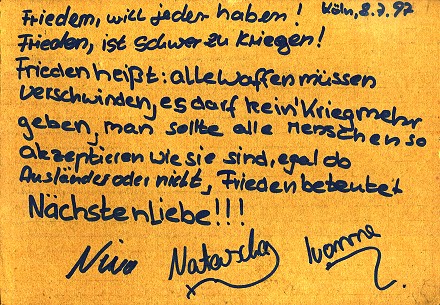 Frieden, will jeder haben! Köln, 8.7.97
Frieden, ist schwer zu Kriegen!
Frieden heißt: alle Waffen müssen
verschwinden, es darf kein Krieg mehr
geben, man sollte alle Menschen so
akzeptieren wie sie sind, egal ob
Ausländer oder nicht, Frieden beteutet
Nächstenliebe!!!
Nina Natascha Ivonne